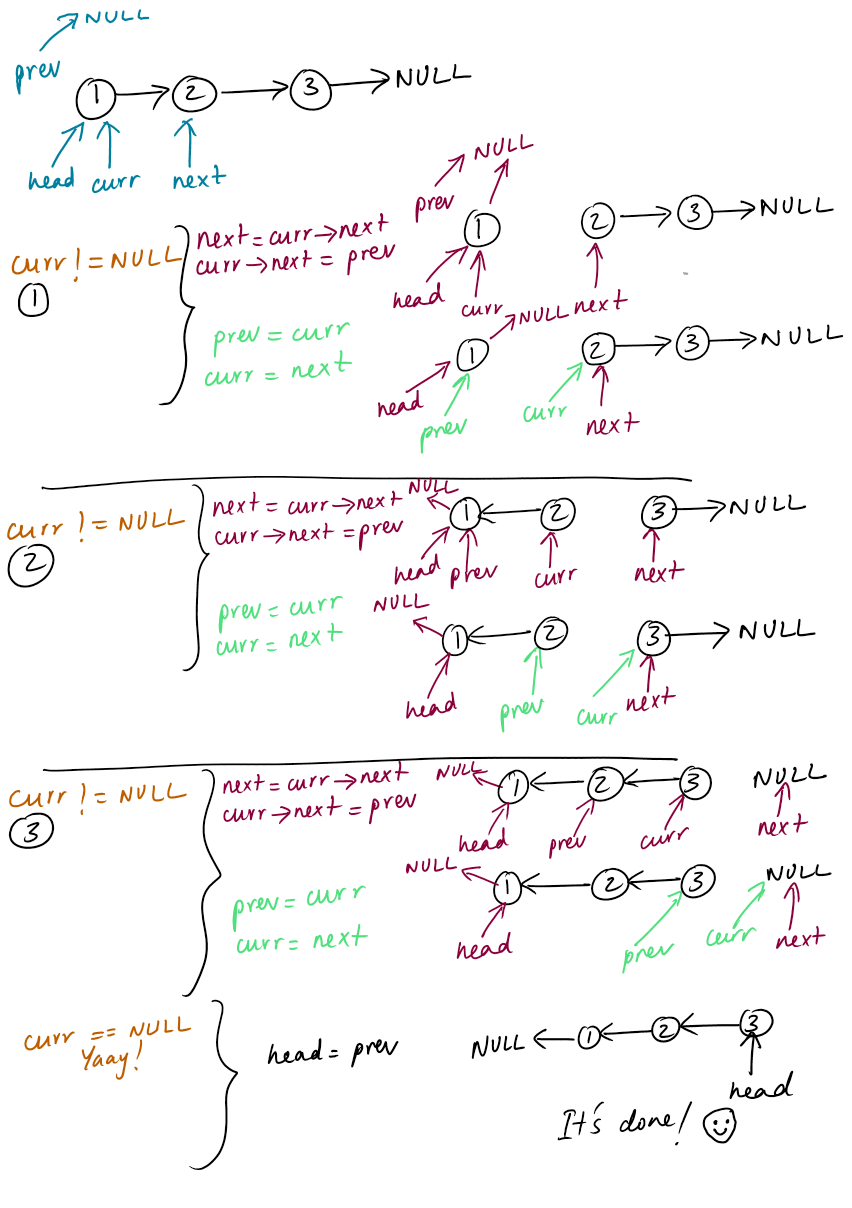 NULL
prev
1 2 3 NULL
head curr next
curr != NULL
1
next = curr→next
curr→next = prev
prev = curr
curr = next
NULL
prev
1 2 3 NULL
head curr next
NULL
1 2 3 NULL
head prev curr next
curr != NULL
2
next = curr→next
curr→next = prev
prev = curr
curr = next
NULL
1 2 3 NULL
head prev curr next
NULL
1 2 3 NULL
head prev curr next
curr != NULL
3
next = curr→next
curr→next = prev
prev = curr
curr = next
NULL 1 2 3 NULL
head prev curr next
NULL 1 2 3 NULL
head prev curr next
curr == NULL
Yaay!
head = prev
NULL 1 2 3
head
It's done!